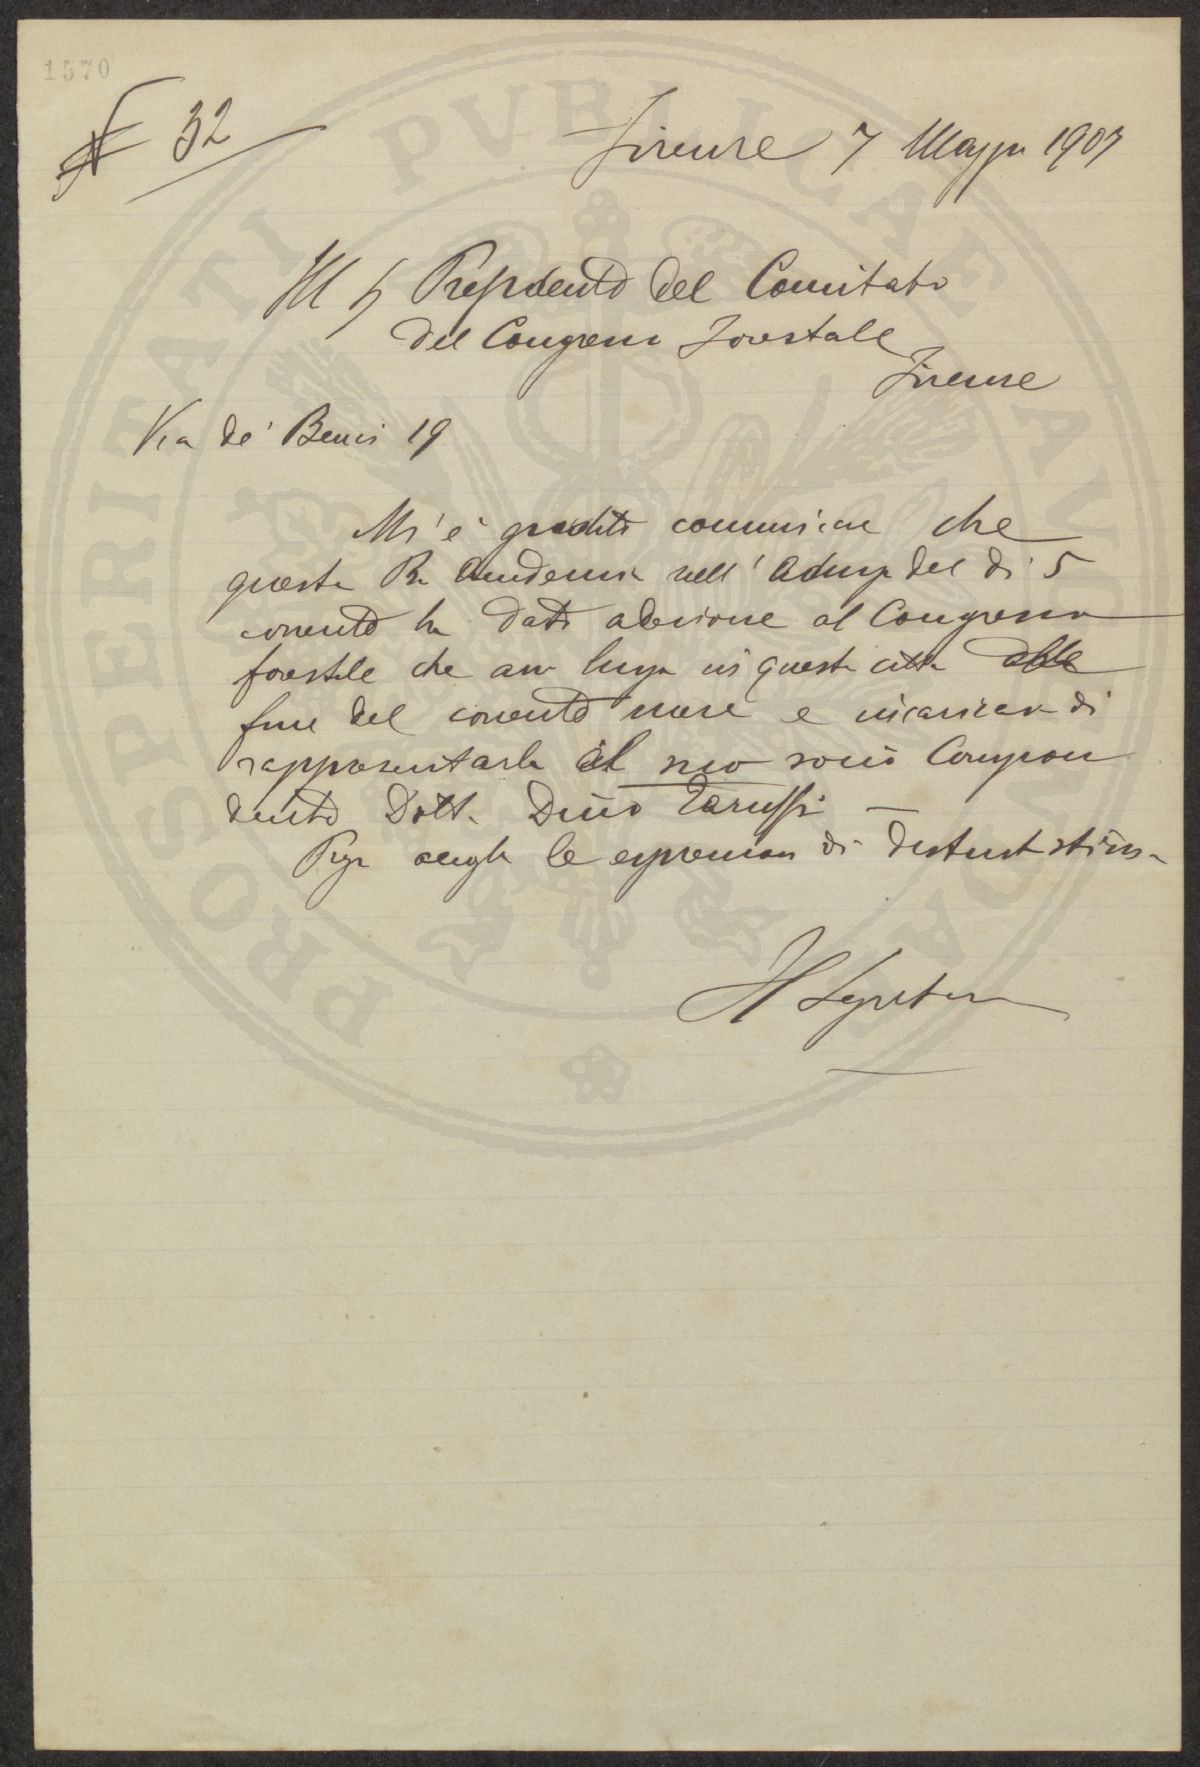 1570
N 32
Firenze 7 Maggio 1907
Ill Sr Presidente del Comitato
del Congresso Forestale
Firenze
Via de' Benci 19
Mi è gradito comunicare che
questa R. Accademia nell' Adunza del dì 5
corrente ha dato adesione al Congresso
forestale che avrà luogo in questa città alla
fine del corrente mese e incaricava di
rappresentarla il suo socio Corrispon
dente Dott. Dino
Prego accogliere le espressioni di distint stima
Il Segretario
PROSPERITATI PVBLICAE AVGENDAE